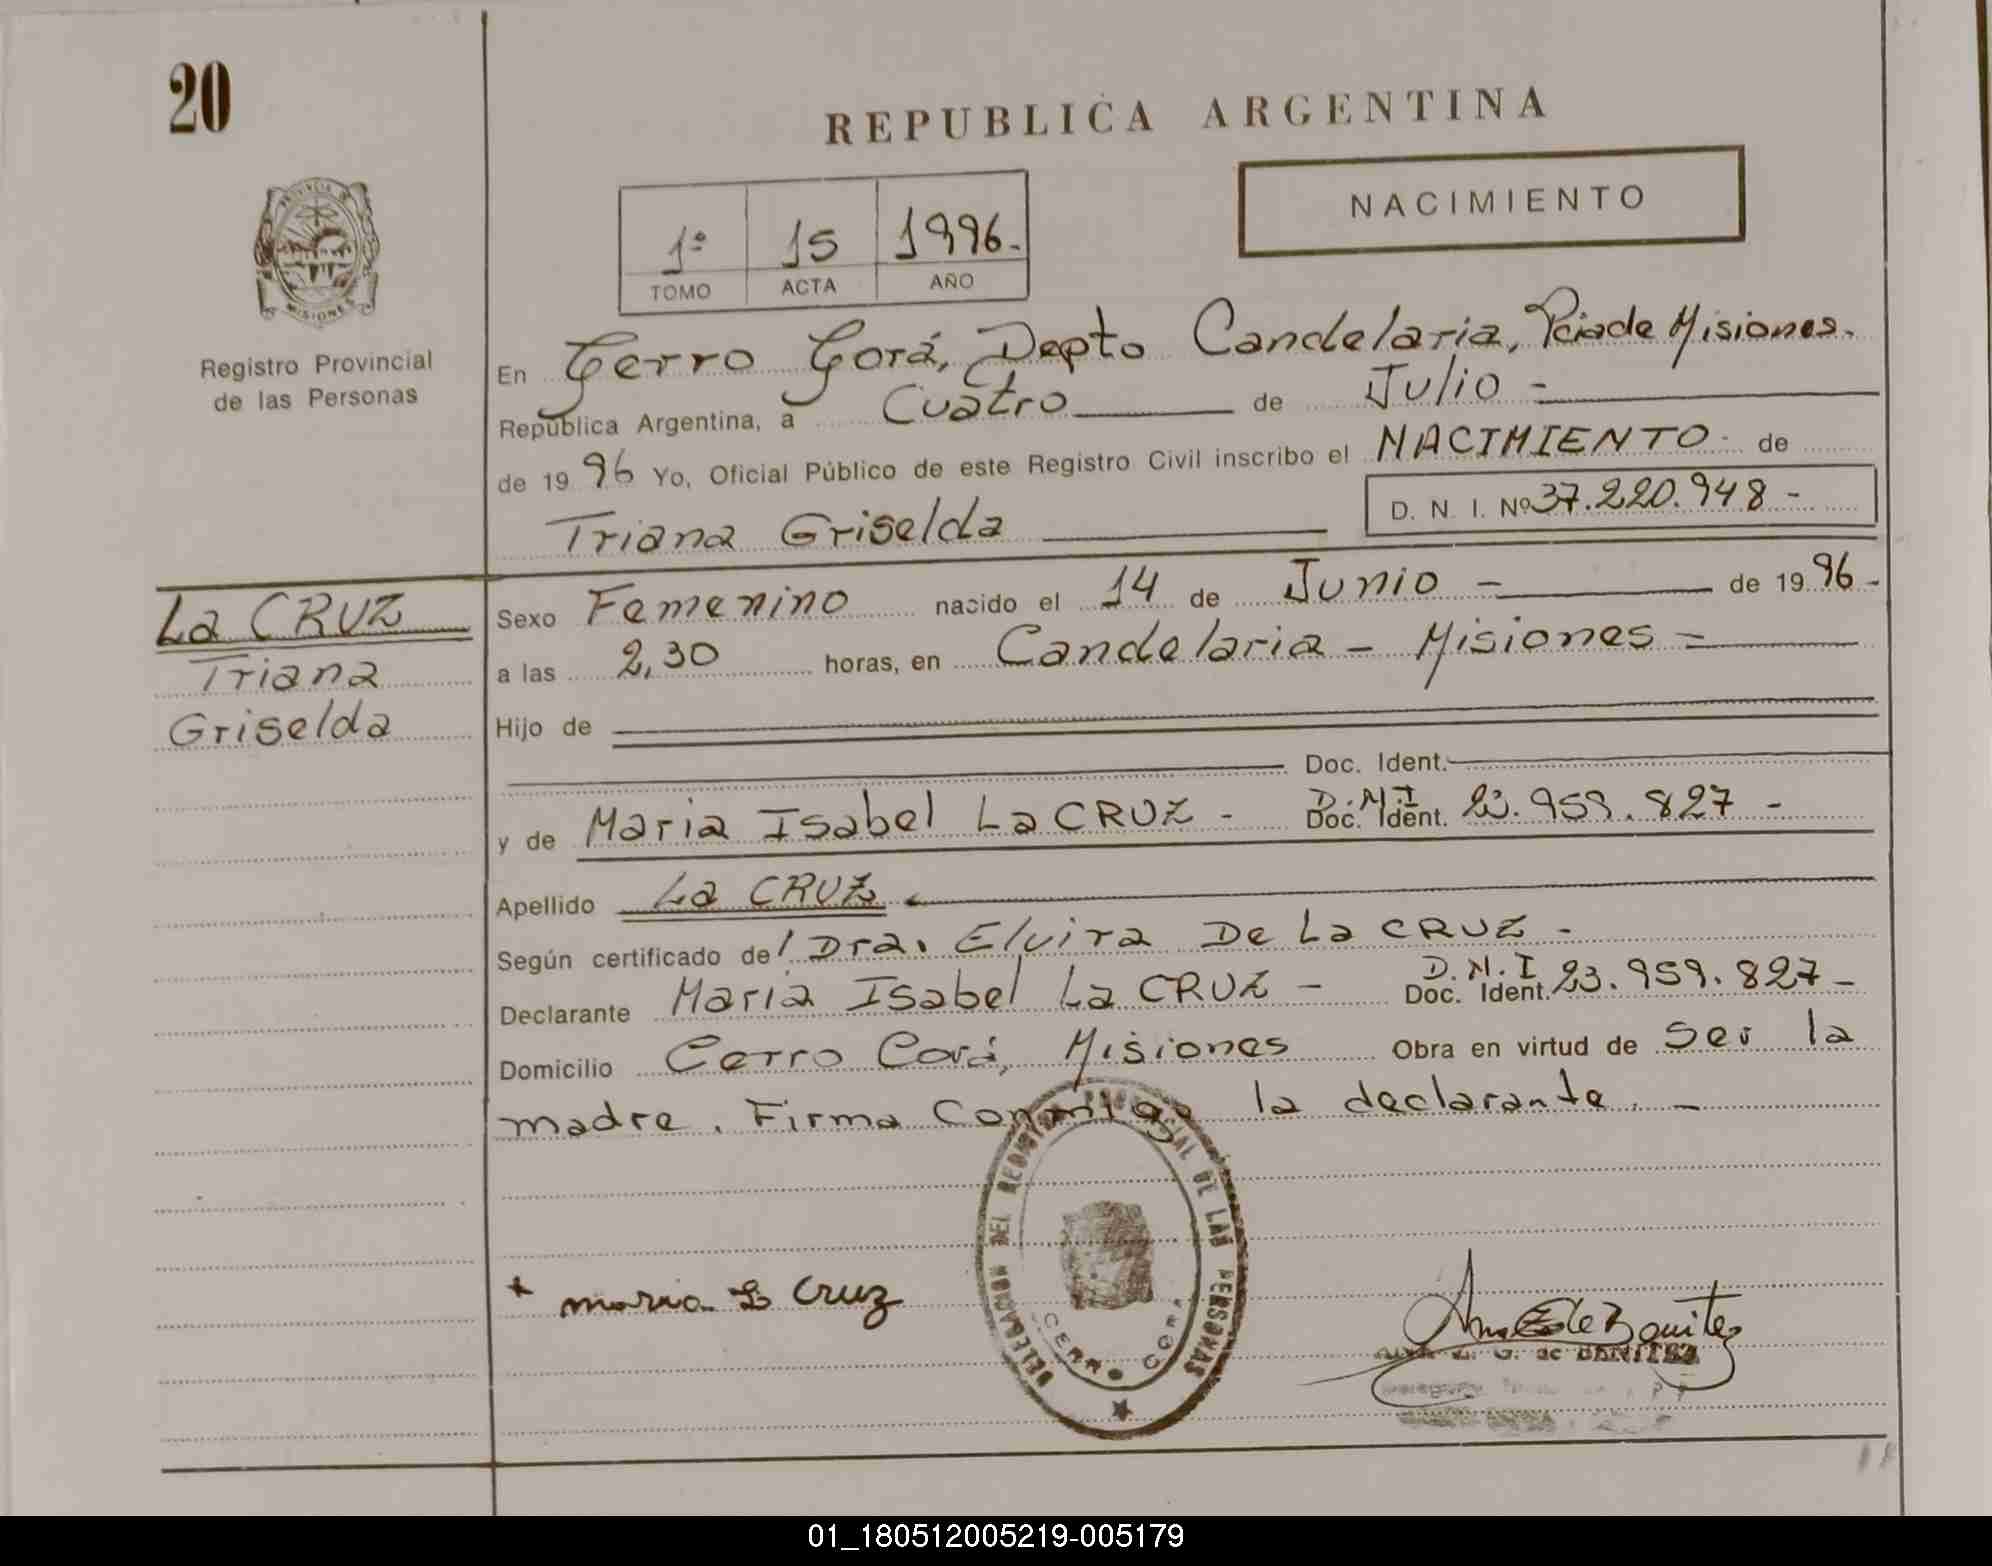 20
REPUBLICA ARGENTINA
NACIMIENTO
PROVINCIA DE
MISIONES
Registro Provincial
de las Personas
1º 15 1996.-
TOMO ACTA AÑO
En Cerro Corá, Depto Candelaria, Pcia de Misiones.-
República Argentina, a Cuatro de Julio -
de 1996 Yo, Oficial Público de este Registro Civil inscribo el NACIMIENTO. de
Triana Griselda D. N. I. Nº 37.220.948 -
La CRUZ
Triana
Griselda
Sexo Femenino nacido el 14 de Junio - de 1996 -
a las 2,30 horas, en Candelaria - Misiones -
Hijo de
Doc. Ident.
y de Maria Isabel La CRUZ - D.N.I Doc. Ident. 23.959.827 -
Apellido La CRUZ
Según certificado de/ Dra. Elvira De La CRUZ -
Declarante Maria Isabel La CRUZ - D.N.I Doc. Ident. 23.959.827 -
Domicilio Cerro Corá, Misiones Obra en virtud de Ser la
madre. Firma Conmigo la declarante. -
DELEGACION DEL REGISTRO PROVINCIAL DE LAS PERSONAS
CERRO CORA
+ maria La Cruz
de Benitez
de BENITEZ
01_180512005219-005179